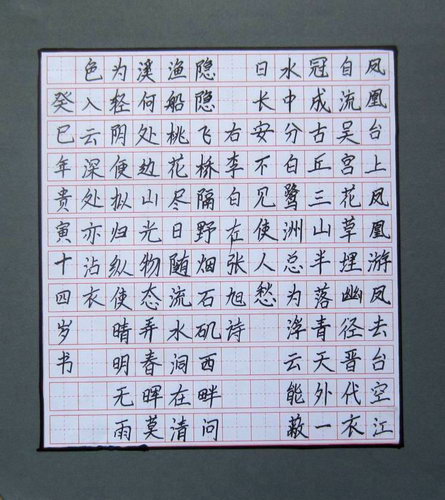 凤凰台上凤凰游凤去台空江
自流吴宫花草埋幽径晋代衣
冠成古丘三山半落青天外一
水中分白鹭洲总为浮云能蔽
日长安不见使人愁
右李白在张旭诗
隐隐飞桥隔野烟石矶西畔问
渔船桃花尽日随流水洞在清
溪何处边山光物态弄春晖莫
为轻阴便拟归纵使晴明无雨
色入云深处亦沾衣
癸巳年贵寅十四岁书